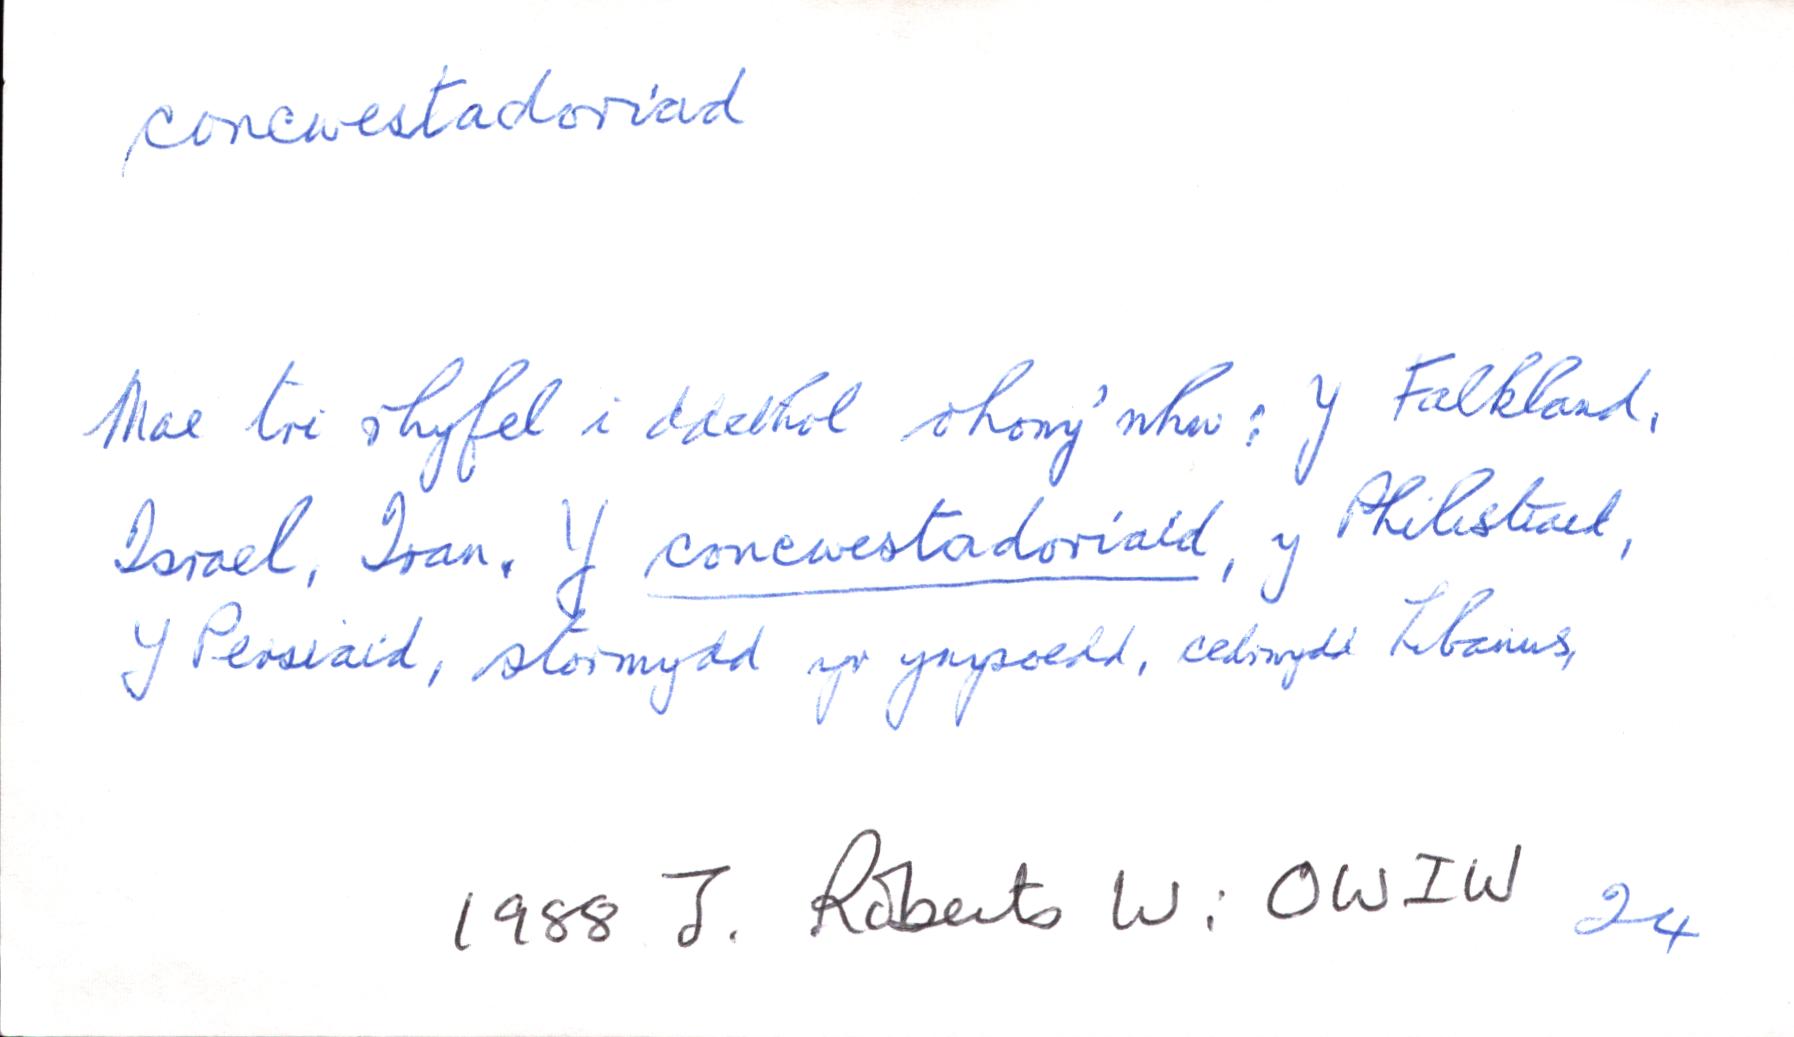 concwestadoriad
Mae tri rhyfel i ddethol ohony'nhw: Y Falkland,
Israel, Iran. Y concwestadoriaid, y Philistiaid,
Y Persiaid, stormydd yr ynysoedd, cedrwydd Libanus,
1988 J. Roberts W: OWIW 24